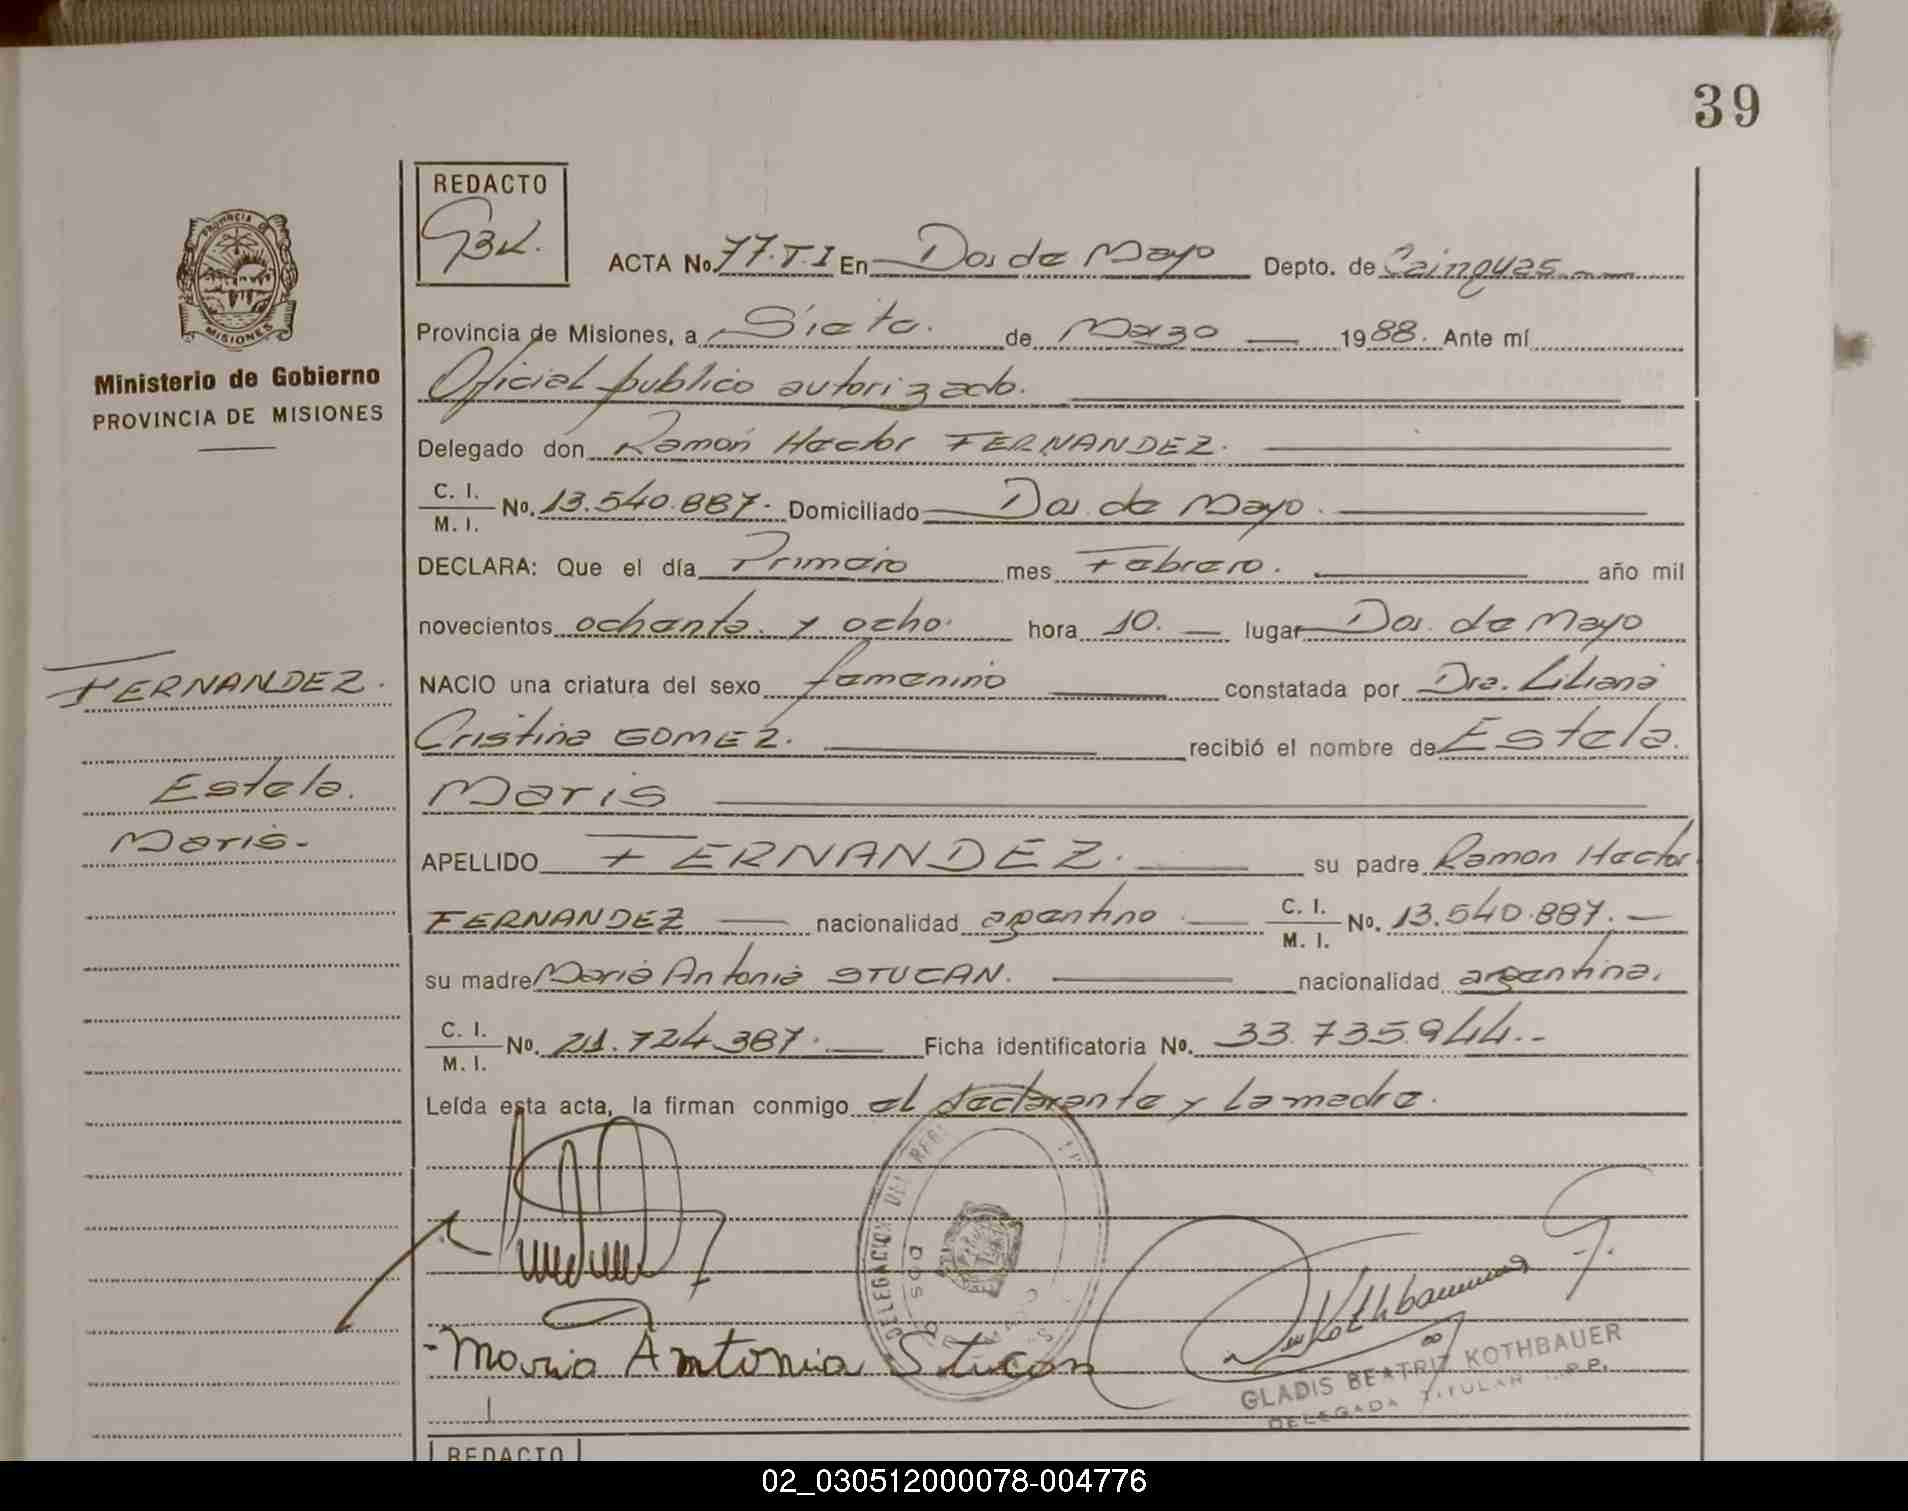 39
REDACTO
GBK.
PROVINCIA DE
MISIONES
Ministerio de Gobierno
PROVINCIA DE MISIONES
ACTA No. 77.T.I En Dos de Mayo Depto. de Cainguas
Provincia de Misiones, a Siete. de Marzo 1988. Ante mí
Oficial publico autorizado.
Delegado don Ramón Hector FERNANDEZ.
C. I.
M. I. No. 13.540.887. Domiciliado Dos de Mayo.
DECLARA: Que el día Primero mes Febrero. año mil
novecientos ochenta y ocho. hora 10. lugar Dos de Mayo
FERNANDEZ. NACIO una criatura del sexo femenino constatada por Dra. Liliana
Cristina GOMEZ. recibió el nombre de Estela.
Estela. Maris
Maris. APELLIDO FERNANDEZ. su padre Ramon Hector
FERNANDEZ nacionalidad argentino C. I. M. I. No. 13.540.887.
su madre Maria Antonia STUCAN. nacionalidad argentina.
C. I.
M. I. No. 21.724.387. Ficha identificatoria No. 33.735.944.-
Leída esta acta, la firman conmigo el declarante y la madre.
DELEGACION DEL REG
DOS D
Kothbauer G.
-Maria Antonia Stucan
GLADIS BEATRIZ KOTHBAUER
DELEGADA TITULAR
REDACTO
02_030512000078-004776